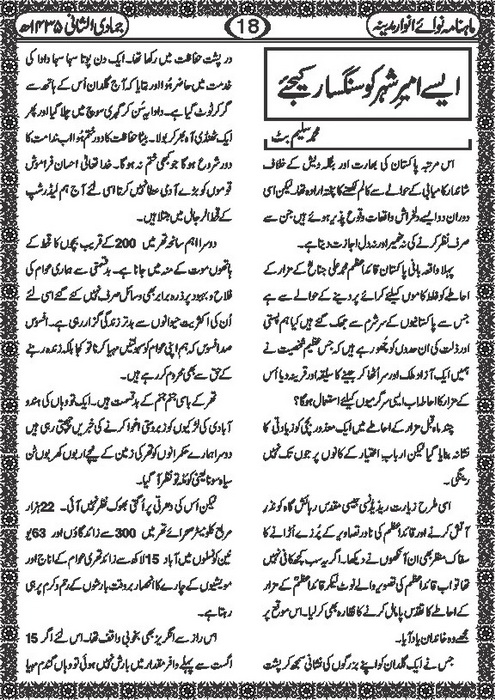 ماہنامہ نوائے انوار مدینہ
18
جمادی الثانی ۱۴۳۵ھ
ایسے امیرِ شہر کو سنگسار کیجئے
محمد سلیم بٹ
اس مرتبہ پاکستان کی بھارت اور بنگلہ دیش کے خلاف
شاندار کامیابی کے حوالے سے کالم لکھنے کا پختہ ارادہ تھا لیکن اسی
دوران دو ایسے دلخراش واقعات وقوع پذیر ہوئے ہیں جن سے
صرف نظر کرنے کی نہ ضمیر اور نہ دل اجازت دیتا ہے۔
پہلا واقعہ بانی پاکستان قائداعظم محمد علی جناحؒ کے مزار کے
احاطے کو غلط کاموں کیلئے کرائے پر دینے کے حوالے سے ہے
جس سے پاکستانیوں کے سر شرم سے جھک گئے ہیں کیا ہم پستی
اور ذلت کی ان حدوں کو چھو رہے ہیں کہ جس عظیم شخصیت نے
ہمیں ایک آزاد ملک اور سر اٹھا کر جینے کا سلیقہ اور قرینہ دیا اُس
کے مزار کا احاطہ اب ایسی سرگرمیوں کیلئے استعمال ہوگا؟
چند ماہ قبل مزار کے احاطے میں ایک معذور بچی کو زیادتی کا
نشانہ بنایا گیا لیکن اربابِ اختیار کے کانوں پر جوں تک نہیں
رینگی۔
اسی طرح زیارت ریذیڈنسی جیسی مقدس رہائش گاہ کو نذر
آتش کرنے اور قائداعظم کی نادر تصاویر کے پُرزے اُڑانے کا
سفاک منظر بھی ان آنکھوں نے دیکھا۔ اگر یہ سب کچھ کافی نہیں
تھا تو اب قائداعظم کی تصویر والے نوٹ لیکر قائداعظم کے مزار
کے احاطے کا تقدس پامال کرنے کا نظارہ بھی کر لیا۔ اس موقع پر
مجھے وہ خاندان یاد آیا۔
جس نے ایک گلدان کو اپنے بزرگوں کی نشانی سمجھ کر پشت
در پشت حفاظت میں رکھا تھا۔ ایک دن پوتا سہما سہما دادا کی
خدمت میں حاضر ہوا اور بتایا کہ آج گلدان اُس کے ہاتھ سے
گر کر ٹوٹ گیا ہے۔ دادا یہ سُن کر گہری سوچ میں چلا گیا اور پھر
ایک ٹھنڈی آہ بھر کر بولا۔ بیٹا حفاظت کا دور ختم ہوا اب ندامت کا
دور شروع ہوگا جو کبھی ختم نہ ہوگا۔ خدا تعالیٰ احسان فراموش
قوموں کو بڑے آدمی عطا نہیں کرتا اسی لئے آج ہم لیڈر شپ
کے قحط الرجال میں مبتلا ہیں۔
دوسرا اہم سانحہ تھر میں 200 کے قریب بچوں کا قحط کے
ہاتھوں موت کے منہ میں جانا ہے۔ بدقسمتی سے ہماری عوام کی
فلاح و بہبود پر ذرہ برابر بھی وسائل صرف نہیں کئے گئے اسی لئے
اُن کی اکثریت حیوانوں سے بدتر زندگی گزار رہی ہے۔ افسوس
صد افسوس کہ ہم اپنی عوام کو سہولتیں مہیا کرنا تو کجا بلکہ زندہ رہنے
کے حق سے بھی محروم کر رہے ہیں۔
تھر کے باسی جنم جنم کے بدقسمت ہیں۔ ایک تو وہاں کی ہندو
آبادی کی لڑکیوں کو زبردستی اغوا کرنے کی خبریں چھپتی رہی ہیں
دوسرا ہمارے حکمرانوں کو تھر کی زمین کے نیچے اربوں کھربوں ٹن
سیاہ سونا یعنی کوئلہ تو نظر آ گیا۔
لیکن اُس کی دھرتی پر اُگتی بھوک نظر نہیں آئی۔ 22 ہزار
مربع کلومیٹر صحرائے تھر میں 300 سے زائد گاؤں اور 63 یو
نین کونسلوں میں آباد 15 لاکھ سے زائد تھری عوام کے اناج اور
مویشیوں کے چارے کا انحصار بروقت بارشوں کے رحم و کرم پر ہی
رہتا ہے۔
اس راز سے انگریز بھی بخوبی واقف تھا۔ اس لئے اگر 15
اگست سے پہلے وافر مقدار میں بارش نہیں ہوئی تو وہاں گندم مہیا